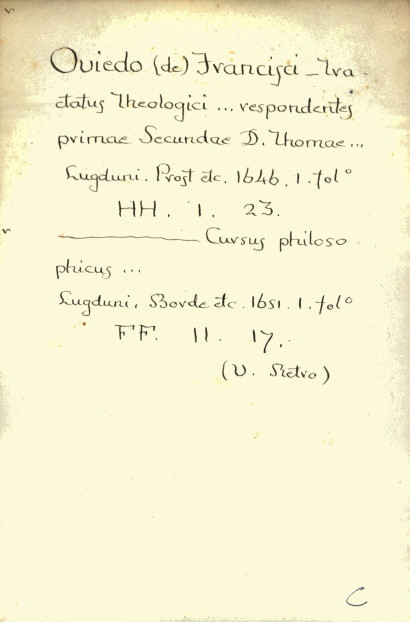 Oviedo (de) Francisci _ Tra
ctatus Theologici ... respondentes
primae Secundae D. Thomae ...
Lugduni. Prost etc. 1646. 1. folº
HH. 1. 23.
——— Cursus philoso
phicus ...
Lugduni, Borde etc. 1651. 1. folº
FF. 11. 17.
(V. Retro)
C